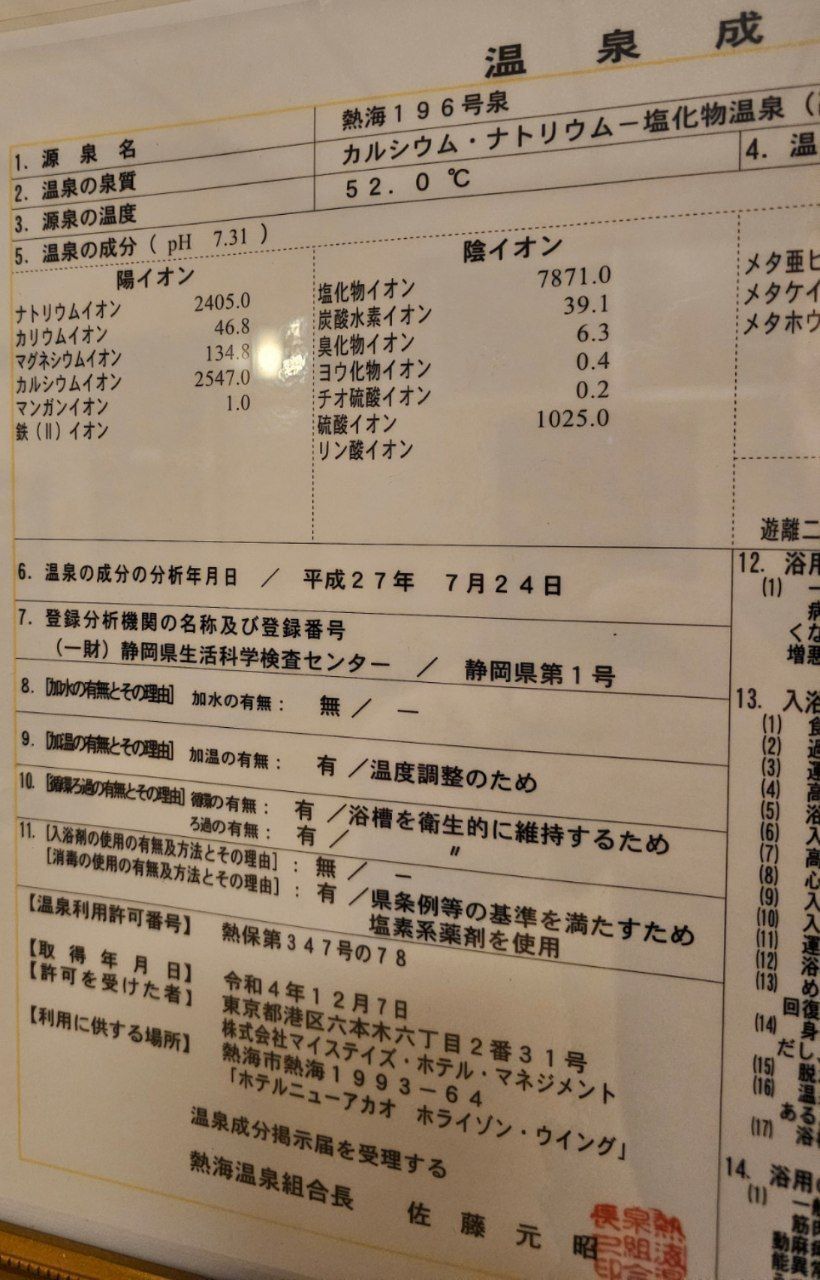 温泉成
1. 源泉名
熱海196号泉
2. 温泉の泉質
カルシウム・ナトリウム－塩化物温泉（
3. 源泉の温度
52.0℃
4. 温
5. 温泉の成分（ pH 7.31 ）
陽イオン
ナトリウムイオン 2405.0
カリウムイオン 46.8
マグネシウムイオン 134.8
カルシウムイオン 2547.0
マンガンイオン 1.0
鉄（II）イオン
陰イオン
塩化物イオン 7871.0
炭酸水素イオン 39.1
臭化物イオン 6.3
ヨウ化物イオン 0.4
チオ硫酸イオン 0.2
硫酸イオン 1025.0
リン酸イオン
メタ亜ヒ
メタケイ
メタホウ
遊離二
6. 温泉の成分の分析年月日 ／ 平成27年 7月24日
7. 登録分析機関の名称及び登録番号
（一財）静岡県生活科学検査センター ／ 静岡県第1号
8. [加水の有無とその理由] 加水の有無： 無 ／ ―
9. [加温の有無とその理由] 加温の有無： 有 ／温度調整のため
10. [循環ろ過の有無とその理由] 循環の有無： 有 ／浴槽を衛生的に維持するため
ろ過の有無： 有 ／ 〃
11. [入浴剤の使用の有無及方法とその理由]： 無 ／ ―
[消毒の使用の有無及方法とその理由]： 有 ／県条例等の基準を満たすため
塩素系薬剤を使用
【温泉利用許可番号】 熱保第347号の78
【取得年月日】 令和4年12月7日
【許可を受けた者】 東京都港区六本木六丁目2番31号
株式会社マイステイズ・ホテル・マネジメント
【利用に供する場所】 熱海市熱海1993－64
「ホテルニューアカオ ホライゾン・ウイング」
温泉成分掲示届を受理する
熱海温泉組合長 佐藤元昭
12. 浴用
(1) 一
病
くな
増悪
13. 入浴
(1) 食
(2) 過
(3) 運
(4) 高
(5) 浴
(6) 入
(7) 高
(8) 心
(9) 入
(10) 入
(11) 運
(12) 浴
(13) め
回復
(14) 身
だし、
(15) 脱
(16) 温
ある
(17) 浴
14. 浴用の
(1) 一般
筋肉
麻痺
動
能